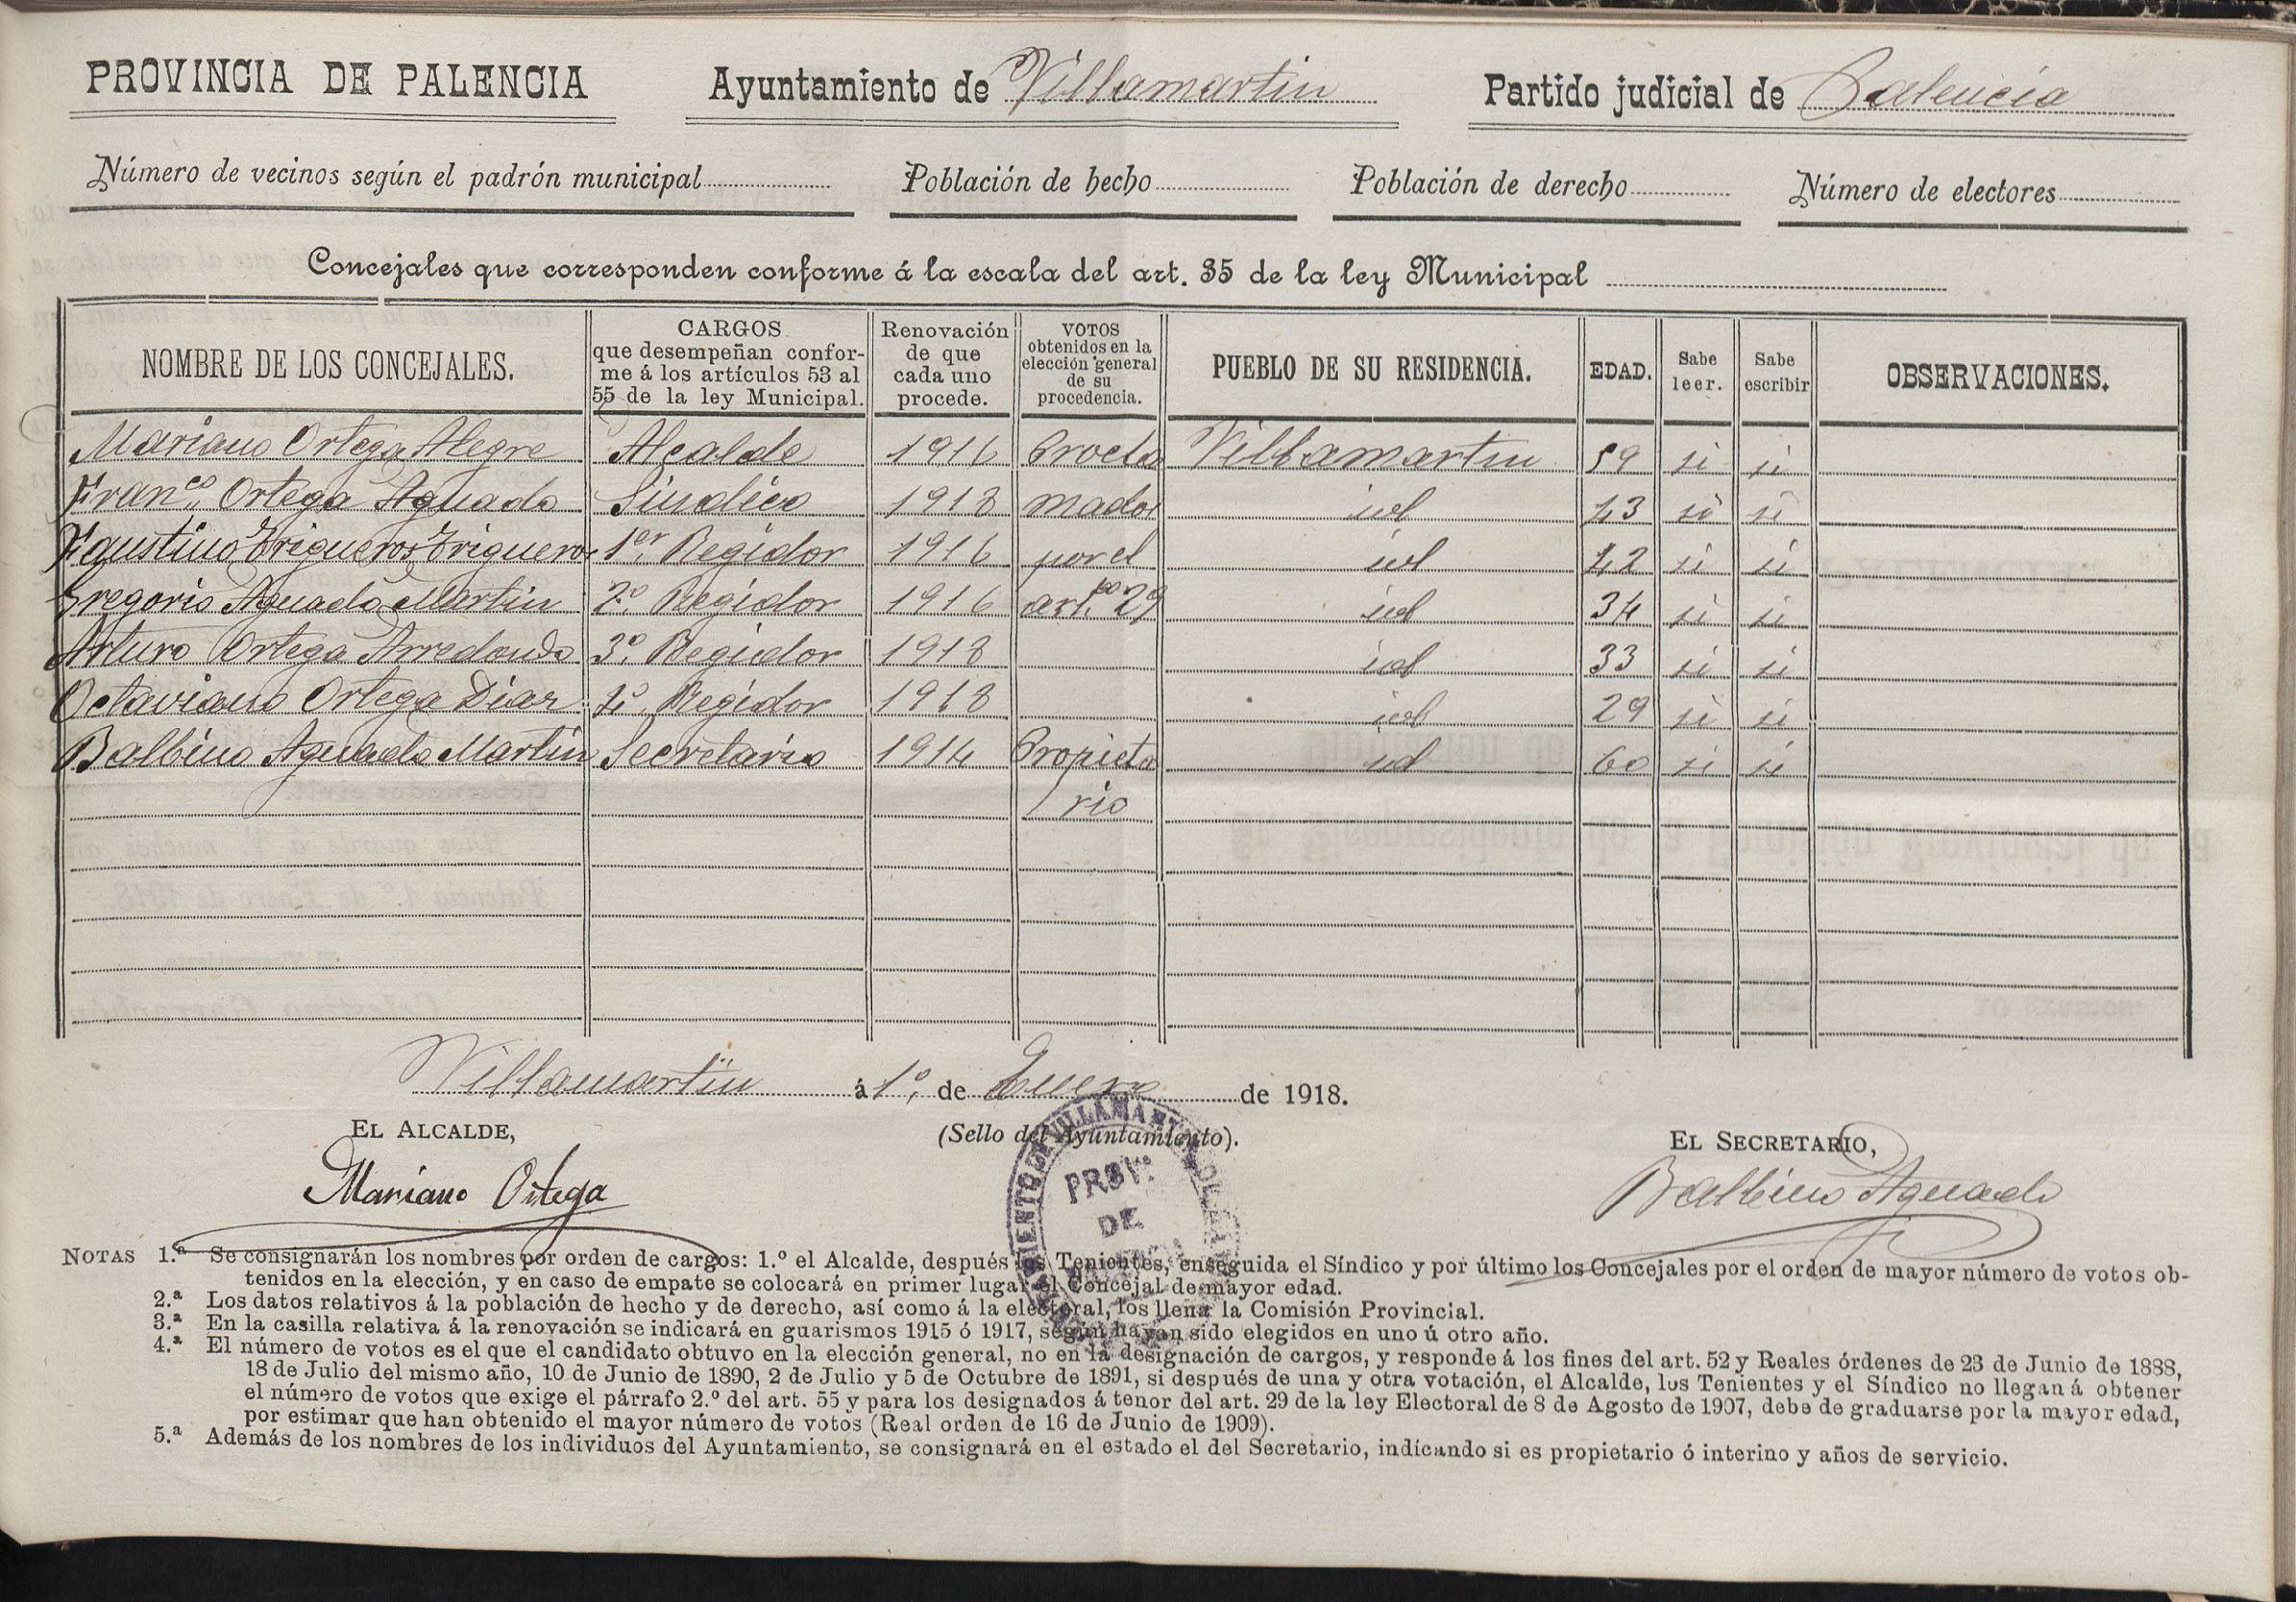 PROVINCIA DE PALENCIA Ayuntamiento de Villamartin Partido judicial de Palencia
Número de vecinos según el padrón municipal Población de hecho Población de derecho Número de electores
Concejales que corresponden conforme á la escala del art. 35 de la ley Municipal
NOMBRE DE LOS CONCEJALES. CARGOS que desempeñan conforme á los artículos 53 al 55 de la ley Municipal. Renovación de que cada uno procede. VOTOS obtenidos en la elección general de su procedencia. PUEBLO DE SU RESIDENCIA. EDAD. Sabe leer. Sabe escribir OBSERVACIONES.
Mariano Ortega Alegre Alcalde 1916 Procla Villamartin 59 si si
Franco. Ortega Aguado Sindico 1918 mados id 43 si si
Faustino Trigueros Trigueros 1er Regidor 1916 por el id 42 si si
Gregorio Aguado Martin 2º Regidor 1916 artco 29 id 34 si si
Arturo Ortega Arredondo 3º Regidor 1918 id 33 si si
Octaviano Ortega Diaz 4º Regidor 1918 id 29 si si
Balbino Aguado Martin Secretario 1914 Propieta id 60 si si
rio
Villamartin á 1º de Enero de 1918.
EL ALCALDE, (Sello del Ayuntamiento). EL SECRETARIO,
Mariano Ortega Balbino Aguado
PROV.
DE
NOTAS 1.ª Se consignarán los nombres por orden de cargos: 1.º el Alcalde, después los Tenientes, enseguida el Síndico y por último los Concejales por el orden de mayor número de votos ob-
tenidos en la elección, y en caso de empate se colocará en primer lugar el Concejal de mayor edad.
2.ª Los datos relativos á la población de hecho y de derecho, así como á la electoral, los llena la Comisión Provincial.
3.ª En la casilla relativa á la renovación se indicará en guarismos 1915 ó 1917, según hayan sido elegidos en uno ú otro año.
4.ª El número de votos es el que el candidato obtuvo en la elección general, no en la designación de cargos, y responde á los fines del art. 52 y Reales órdenes de 23 de Junio de 1888,
18 de Julio del mismo año, 10 de Junio de 1890, 2 de Julio y 5 de Octubre de 1891, si después de una y otra votación, el Alcalde, los Tenientes y el Síndico no llegan á obtener
el número de votos que exige el párrafo 2.º del art. 55 y para los designados á tenor del art. 29 de la ley Electoral de 8 de Agosto de 1907, debe de graduarse por la mayor edad,
por estimar que han obtenido el mayor número de votos (Real orden de 16 de Junio de 1909).
5.ª Además de los nombres de los individuos del Ayuntamiento, se consignará en el estado el del Secretario, indicando si es propietario ó interino y años de servicio.